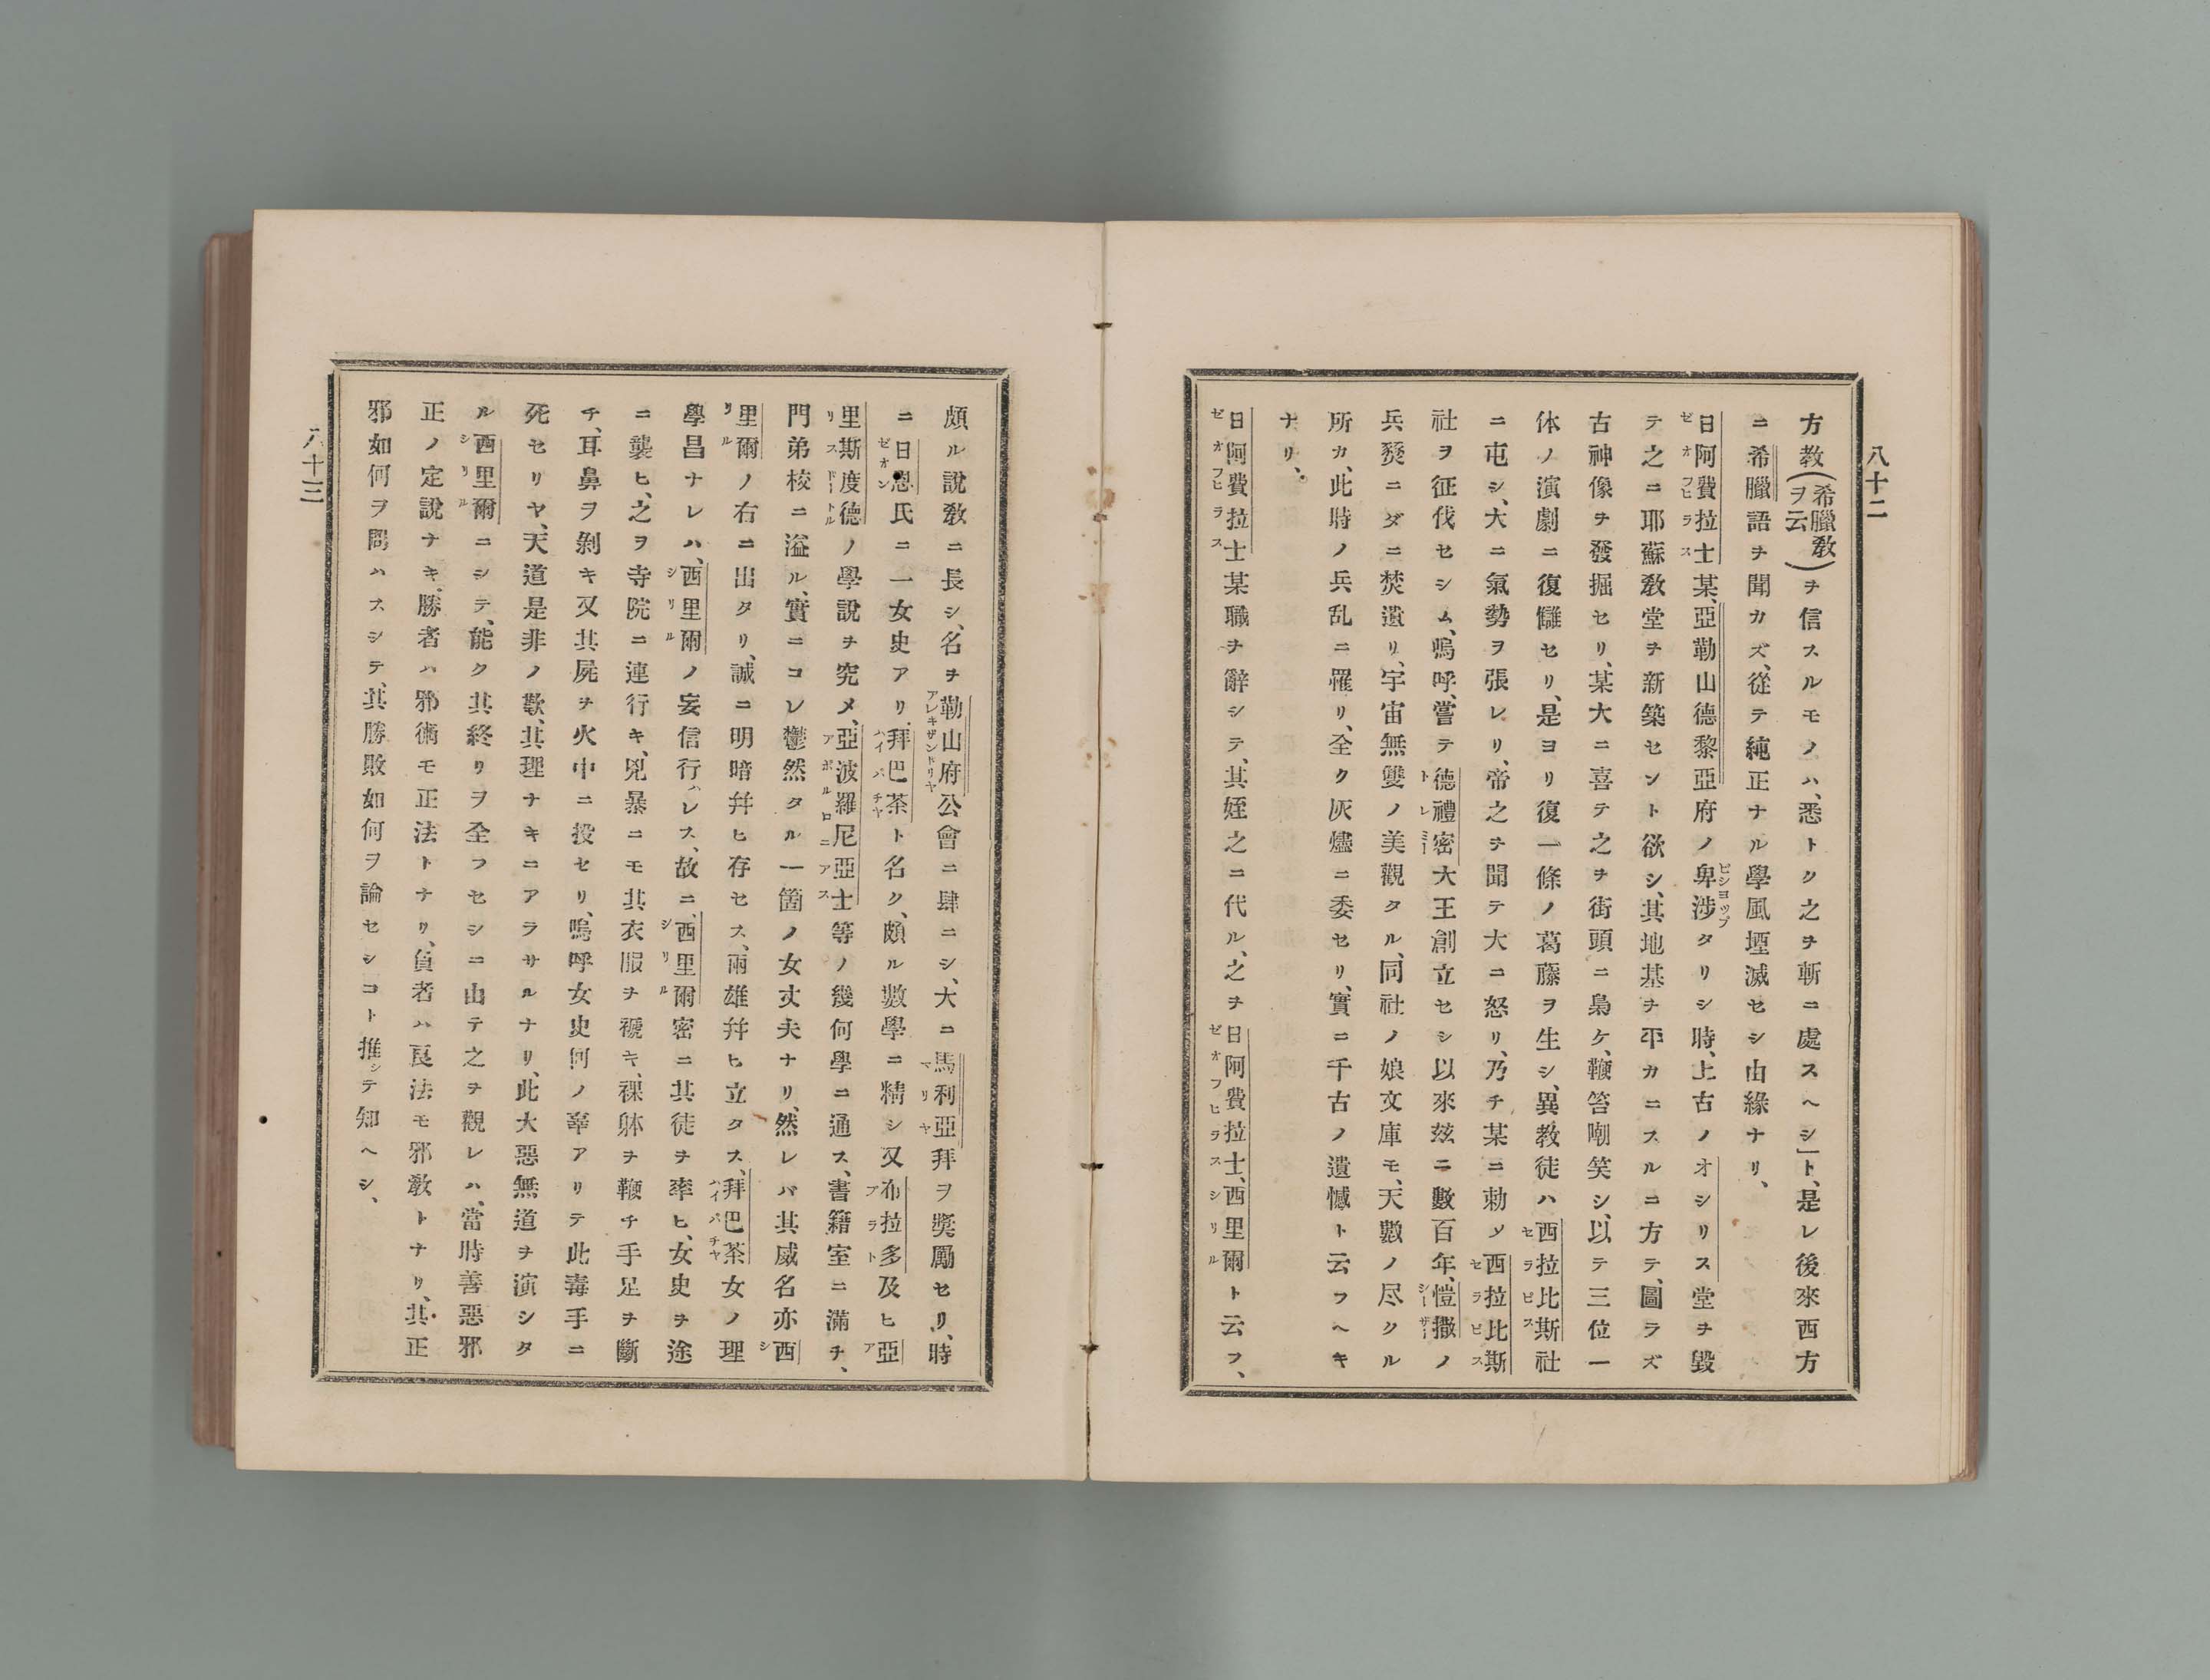 八十二
方教(希臘教ヲ云)ヲ信スルモノハ、悉トク之ヲ斬ニ處スヘシ」ト、是レ後來西方
ニ希臘語ヲ聞カズ、從テ純正ナル學風堙滅セシ由緣ナリ、
日阿費拉士某、亞勒山德黎亞府ノ卑涉タリシ時、上古ノオシリス堂ヲ毀
テ之ニ耶蘇教堂ヲ新築セント欲シ、其地基ヲ平カニスルニ方テ、圖ラズ
古神像ヲ發掘セリ、某大ニ喜テ之ヲ街頭ニ梟ケ、鞭笞嘲笑シ、以テ三位一
体ノ演劇ニ復讎セリ、是ヨリ復一條ノ葛藤ヲ生シ、異教徒ハ西拉比斯社
ニ屯シ、大ニ氣勢ヲ張レリ、帝之ヲ聞テ大ニ怒リ、乃チ某ニ勅メ西拉比斯
社ヲ征伐セシム、嗚呼、嘗テ德禮密大王創立セシ以來玆ニ數百年、愷撒ノ
兵燹ニダニ焚遺リ、宇宙無雙ノ美觀タル、同社ノ娘文庫モ、天數ノ尽クル
所カ、此時ノ兵乱ニ罹リ、全ク灰燼ニ委セリ、實ニ千古ノ遺憾ト云フヘキ
ナリ、
日阿費拉士某職ヲ辭シテ、其姪之ニ代ル、之ヲ日阿費拉士、西里爾ト云フ、
頗ル說教ニ長シ、名ヲ勒山府公會ニ肆ニシ、大ニ馬利亞拜ヲ奬勵セリ、時
ニ日恩氏ニ一女史アリ、拜巴茶ト名ク、頗ル數學ニ精シ又布拉多及ヒ亞
里斯度德ノ學說ヲ究メ、亞波羅尼亞士等ノ幾何學ニ通ス、書籍室ニ滿チ、
門弟棱ニ溢ル、實ニコレ鬱然タル一箇ノ女丈夫ナリ、然レバ其威名亦西
里爾ノ右ニ出タリ、誠ニ明暗幷ヒ存セス、兩雄幷ヒ立タス、拜巴茶女ノ理
學昌ナレハ、西里爾ノ妄信行ハレス、故ニ、西里爾密ニ其徒ヲ率ヒ、女史ヲ途
ニ襲ヒ、之ヲ寺院ニ連行キ、兇暴ニモ其衣服ヲ褫キ、裸躰ヲ鞭チ手足ヲ斷
チ、耳鼻ヲ剝キ又其屍ヲ火中ニ投セリ、嗚呼女史何ノ辜アリテ此毒手ニ
死セリヤ、天道是非ノ歎、其理ナキニアラサルナリ、此大惡無道ヲ演シタ
ル西里爾ニシテ、能ク其終リヲ全フセシニ由テ之ヲ觀レハ、當時善惡邪
正ノ定說ナキ、勝者ハ邪術モ正法トナリ、負者ハ良法モ邪教トナリ、其正
邪如何ヲ問ハスシテ、其勝敗如何ヲ論セシコト推シテ知ヘシ、
八十三